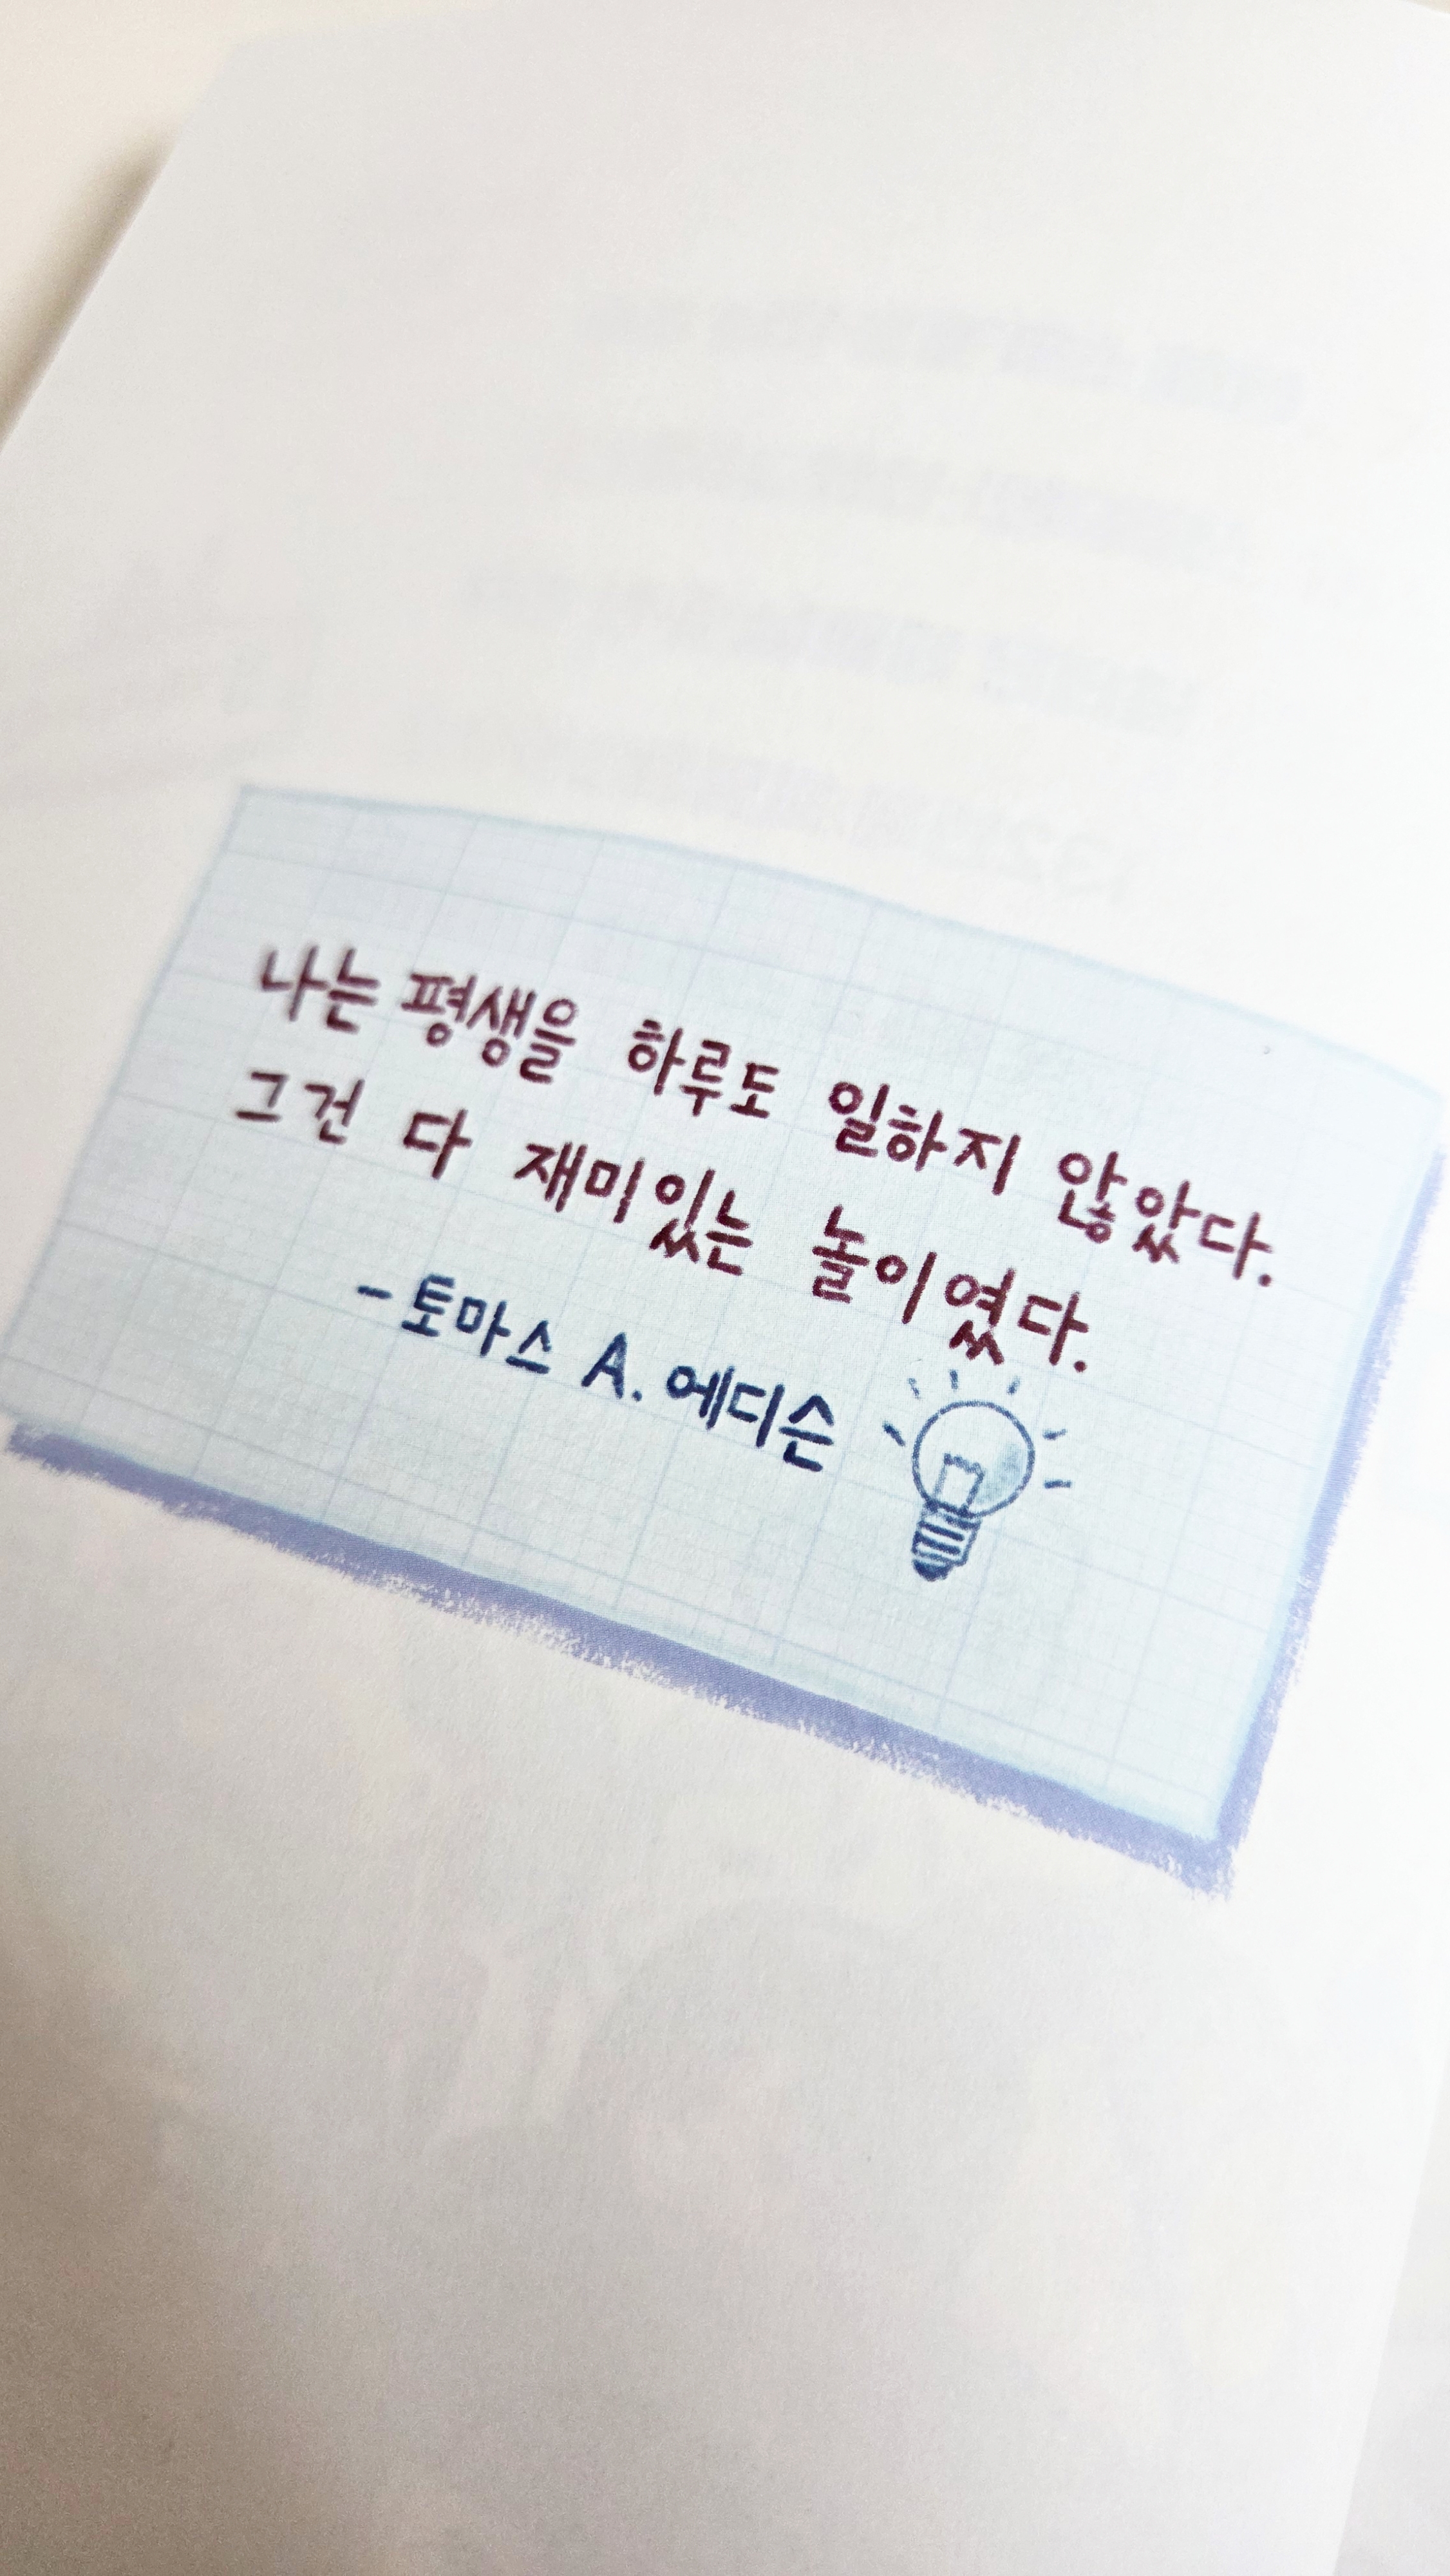 나는 평생을 하루도 일하지 않았다.
그건 다 재미있는 놀이였다.
- 토마스 A. 에디슨